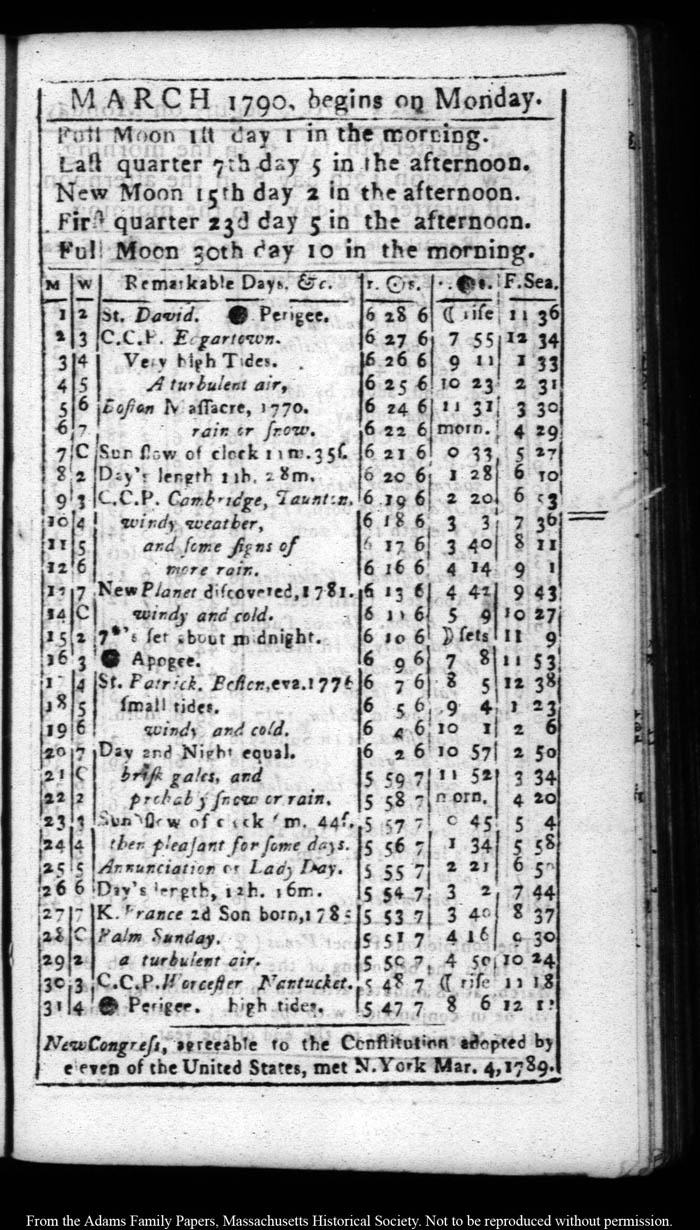 MARCH 1790, begins on Monday.
Full Moon 1st day 1 in the morning.
Last quarter 7th day 5 in the afternoon.
New Moon 15th day 2 in the afternoon.
First quarter 23d day 5 in the afternoon.
Full Moon 30th day 10 in the morning.
M W Remarkable Days, &c. r. ☉s. s. F.Sea.
1 2 St. David. ● Perigee. 6 28 6 ☾ rise 11 36
2 3 C.C.P. Edgartown. 6 27 6 7 55 12 34
3 4 Very high Tides. 6 26 6 9 11 1 33
4 5 A turbulent air, 6 25 6 10 23 2 31
5 6 Boston Massacre, 1770. 6 24 6 11 31 3 30
6 7 rain or snow. 6 22 6 morn. 4 29
7 C Sun slow of clock 11m. 35s. 6 21 6 0 33 5 27
8 2 Day's length 11h. 28m. 6 20 6 1 28 6 10
9 3 C.C.P. Cambridge, Taunton. 6 19 6 2 20 6 53
10 4 windy weather, 6 18 6 3 3 7 36
11 5 and some signs of 6 17 6 3 40 8 11
12 6 more rain. 6 16 6 4 14 9 1
13 7 New Planet discovered, 1781. 6 13 6 4 42 9 43
14 C windy and cold. 6 11 6 5 9 10 27
15 2 7*'s set about midnight. 6 10 6 ☽ sets 11 9
16 3 ● Apogee. 6 9 6 7 8 11 53
17 4 St. Patrick. Boston, eva. 1776 6 7 6 8 5 12 38
18 5 small tides. 6 5 6 9 4 1 23
19 6 windy and cold. 6 4 6 10 1 2 6
20 7 Day and Night equal. 6 2 6 10 57 2 50
21 C brisk gales, and 5 59 7 11 52 3 34
22 2 probably snow or rain. 5 58 7 morn. 4 20
23 3 Sun slow of clock m. 44s. 5 57 7 0 45 5 4
24 4 then pleasant for some days. 5 56 7 1 34 5 58
25 5 Annunciation or Lady Day. 5 55 7 2 21 6
26 6 Day's length, 12h. 16m. 5 54 7 3 2 7 44
27 7 K. France 2d Son born, 1785 5 53 7 3 40 8 37
28 C Palm Sunday. 5 51 7 4 16 9 30
29 2 a turbulent air. 5 50 7 4 50 10 24
30 3 C.C.P. Worcester Nantucket. 5 48 7 ☾ rise 11 18
31 4 ● Perigee. high tides. 5 47 7 8 6 12
New Congress, agreeable to the Constitution adopted by
eleven of the United States, met N. York Mar. 4, 1789.
From the Adams Family Papers, Massachusetts Historical Society. Not to be reproduced without permission.